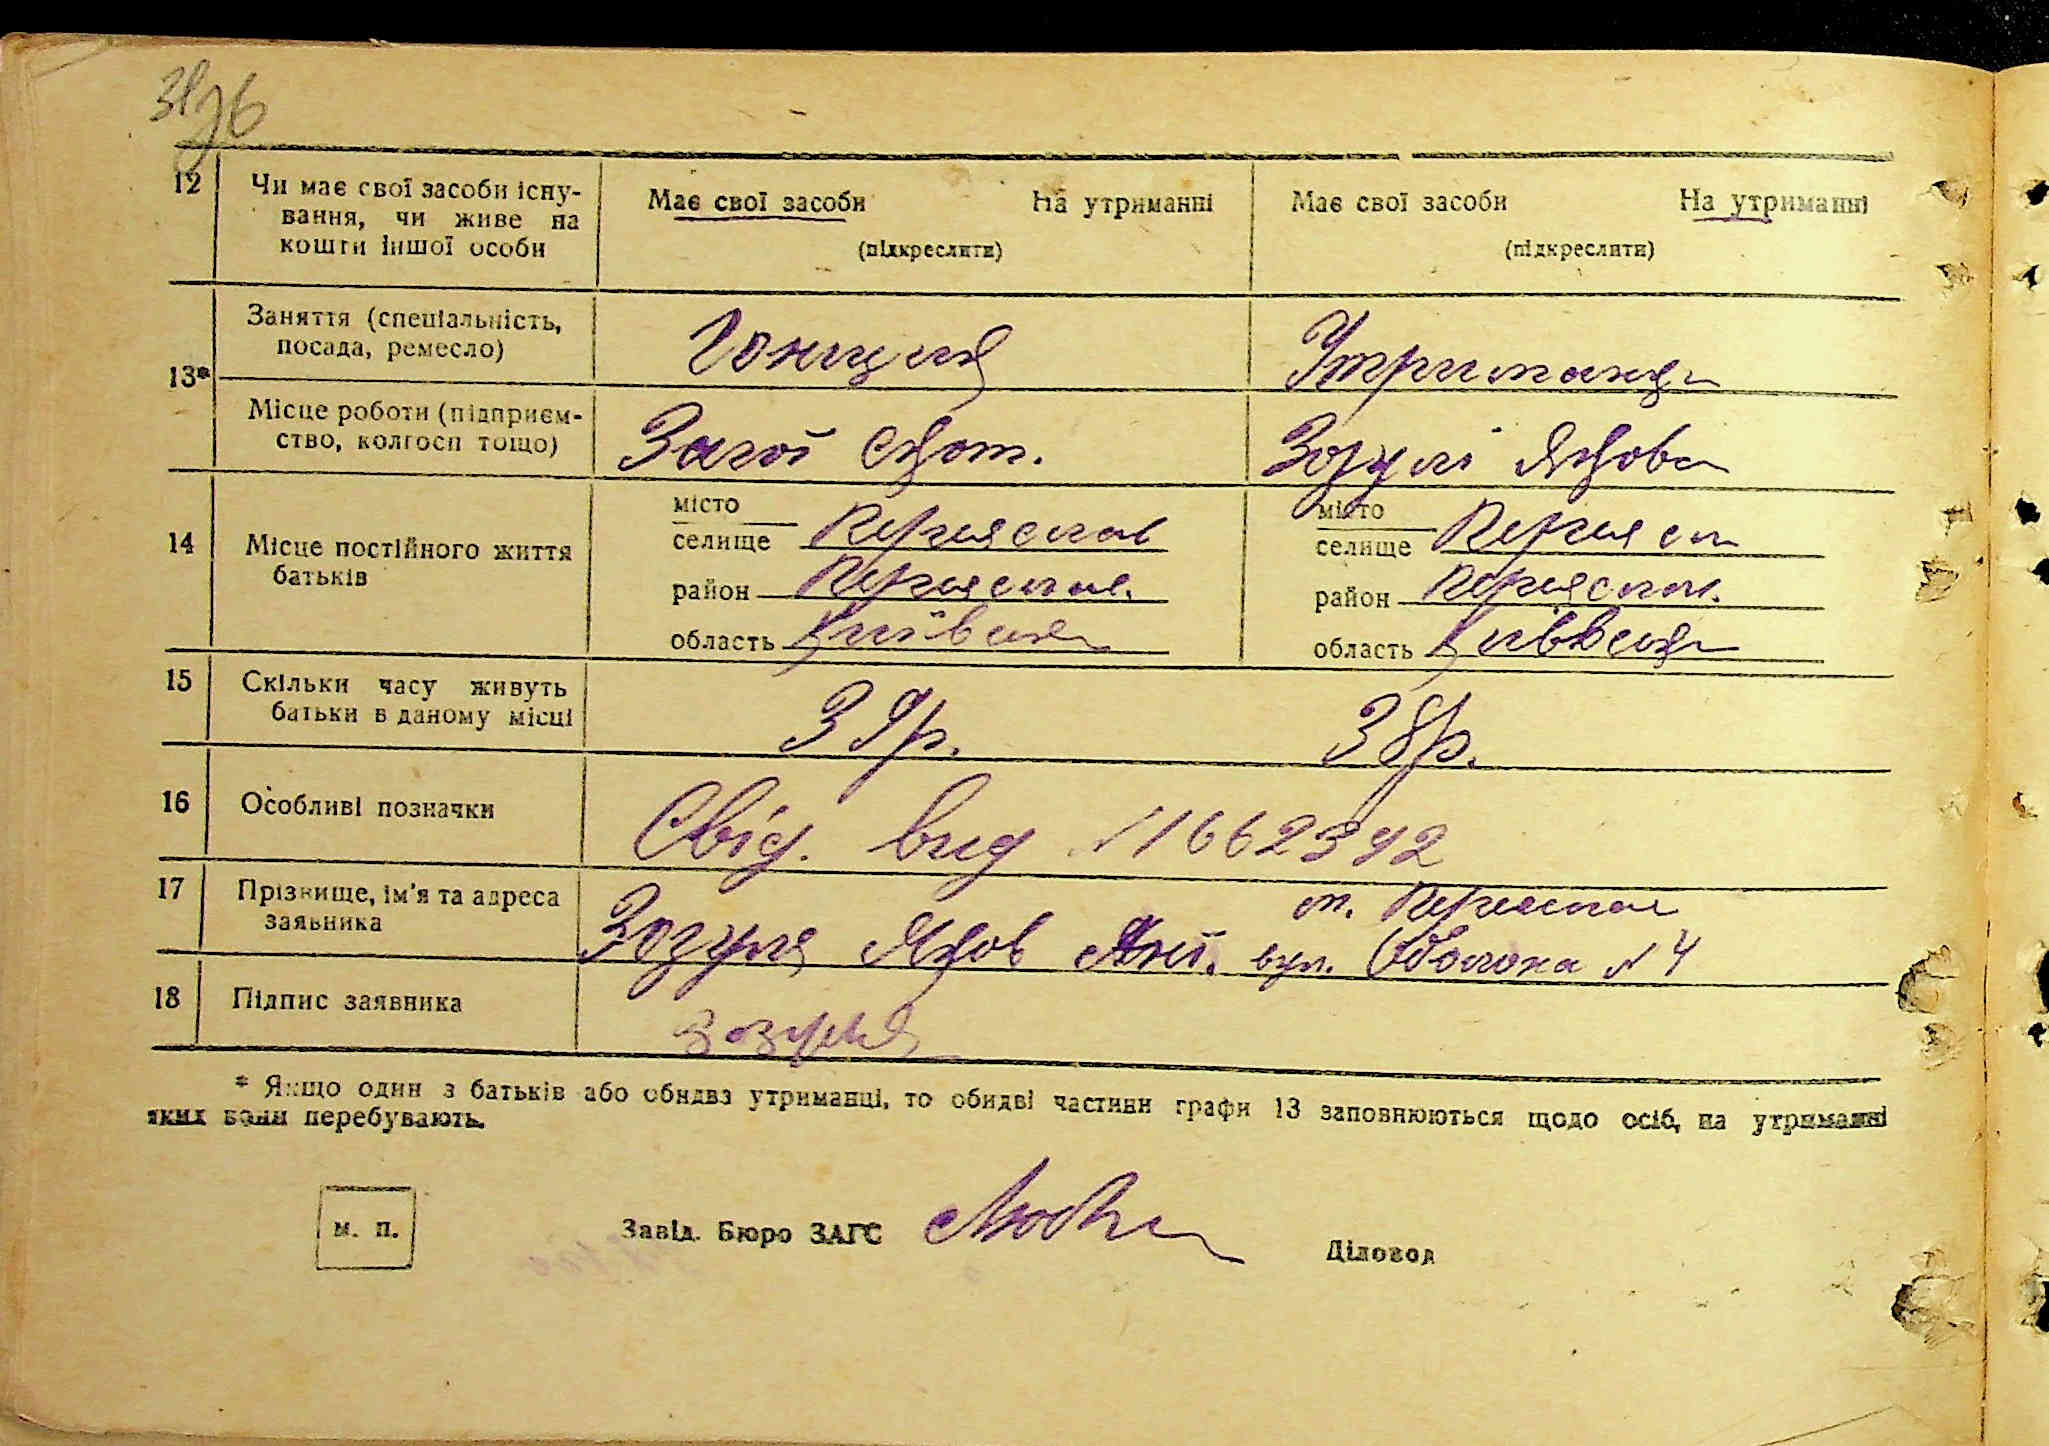 12 Чи має свої засоби існу-
вання, чи живе на
кошти іншої особи
Має свої засоби На утриманні
(підкреслити)
Має свої засоби На утриманні
(підкреслити)
13*
Заняття (спеціальність,
посада, ремесло)
Утриманка
Місце роботи (підприєм-
ство, колгосп тощо)
Зозулі Якова
14 Місце постійного життя
батьків
місто
селище Переяслав
район Переяслав.
область Київська
місто
селище Переясл
район Переяслав.
область Київська
15 Скільки часу живуть
батьки в даному місці
39р. 38р.
16 Особливі позначки
Свід. вид № 1662392
17 Прізвище, ім'я та адреса
заявника
м. Переяслав
Зозуля Яков вул. Оболона № 4
18 Підпис заявника
Зозуля
* Якщо один з батьків або обидва утриманці, то обидві частини графи 13 заповнюються щодо осіб, на утриманні
яких вони перебувають.
м. п.
Завід. Бюро ЗАГС
Діловод